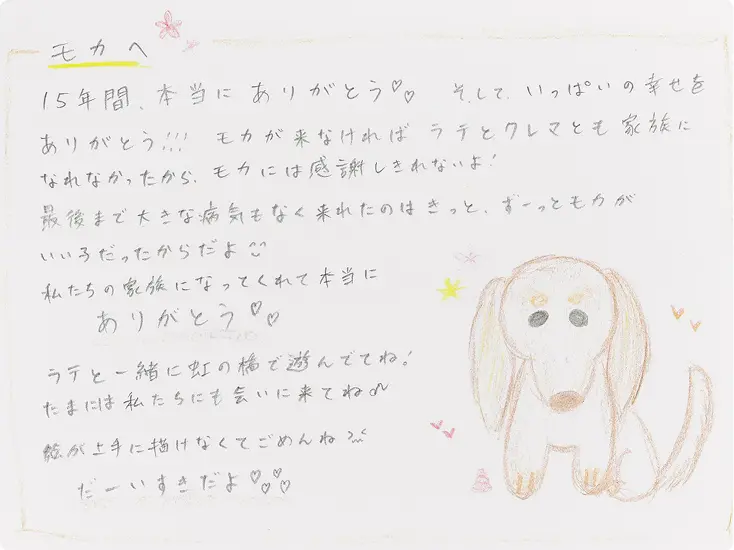 モカへ
15年間、本当にありがとう♡♡ そして、いっぱいの幸せを
ありがとう!!! モカが来なければラテとクレマとも家族に
なれなかったから、モカには感謝しきれないよ!
最後まで大きな病気もなく来れたのはきっと、ずーっとモカが
いい子だったからだよ
私たちの家族になってくれて本当に
ありがとう♡♡
ラテと一緒に虹の橋で遊んでてね!
たまには私たちにも会いに来てね♪
絵が上手に描けなくてごめんね
だーいすきだよ♡♡♡♡